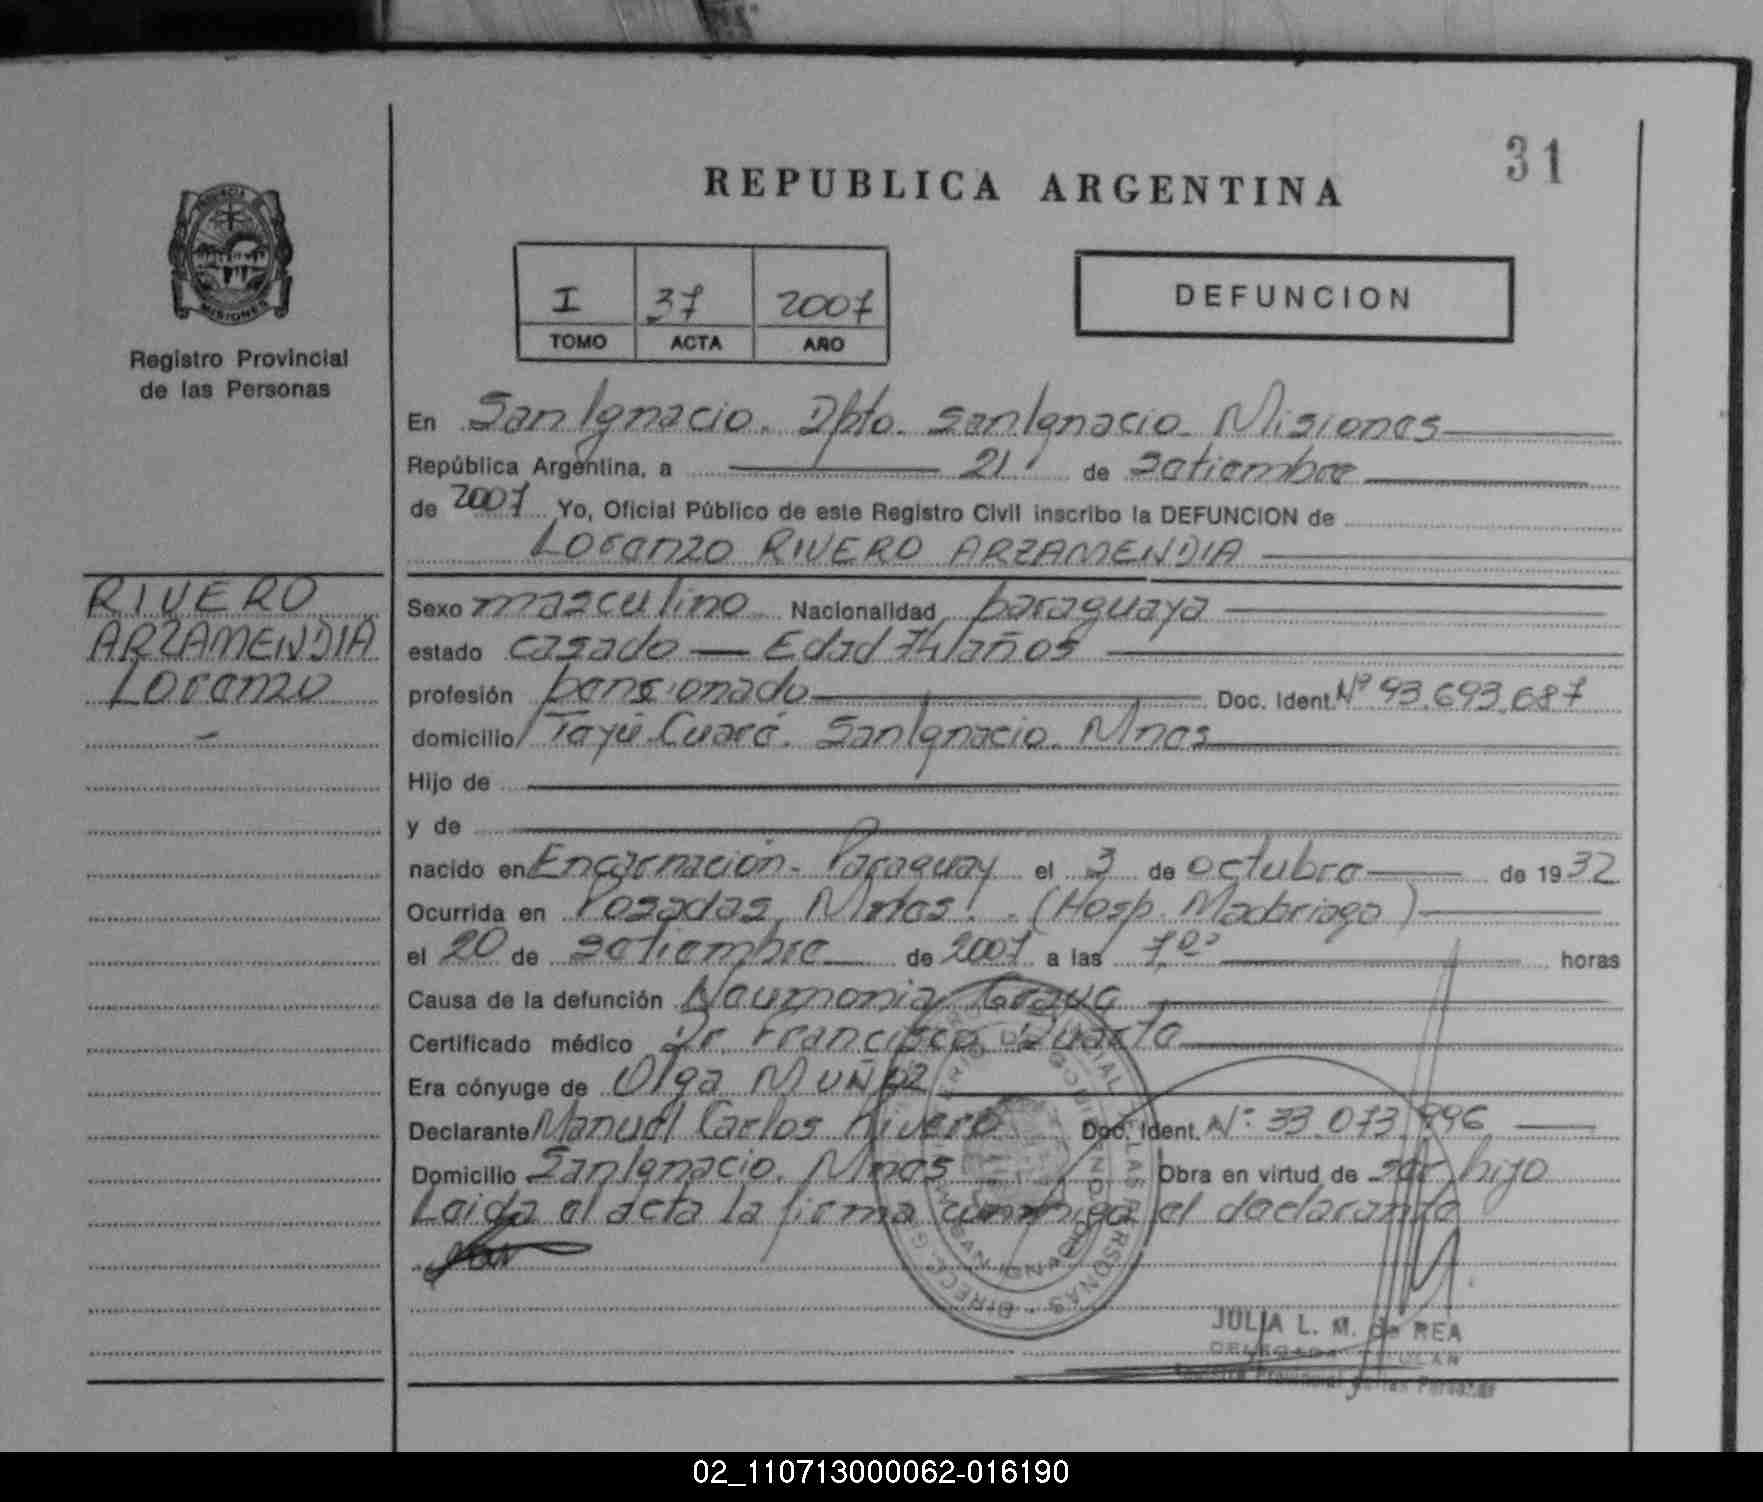 31
REPUBLICA ARGENTINA
PROVINCIA DE
MISIONES
Registro Provincial
de las Personas
I 37 2007
TOMO ACTA AÑO
DEFUNCION
En San Ignacio. Dpto. San Ignacio. Misiones
República Argentina, a 21 de setiembre
de 2007 Yo, Oficial Público de este Registro Civil inscribo la DEFUNCION de
Lorenzo RIVERO ARZAMENDIA
RIVERO
ARZAMENDIA
Lorenzo
Sexo masculino Nacionalidad paraguaya
estado casado — Edad 74 años
profesión pensionado Doc. Ident. Nº 93.693.687
domicilio Teyú Cuaré. San Ignacio. Mnes
Hijo de
y de
nacido en Encarnación - Paraguay el 3 de octubre de 1932
Ocurrida en Posadas, Mnes. (Hosp. Madariaga)
el 20 de setiembre de 2007 a las 7,00 horas
Causa de la defunción Neumonia Grave
Certificado médico Dr. Francisco Duarte
Era cónyuge de Olga MUÑOZ
Declarante Manuel Carlos Rivero Doc. Ident. Nº: 33.073.996
Domicilio San Ignacio. Mnes Obra en virtud de ser hijo
Leida el acta la firma conmigo el declarante
SAN IGNACIO
JULIA L. M. de REA
DELEGADA TITULAR
Registro Provincial de las Personas
02_110713000062-016190